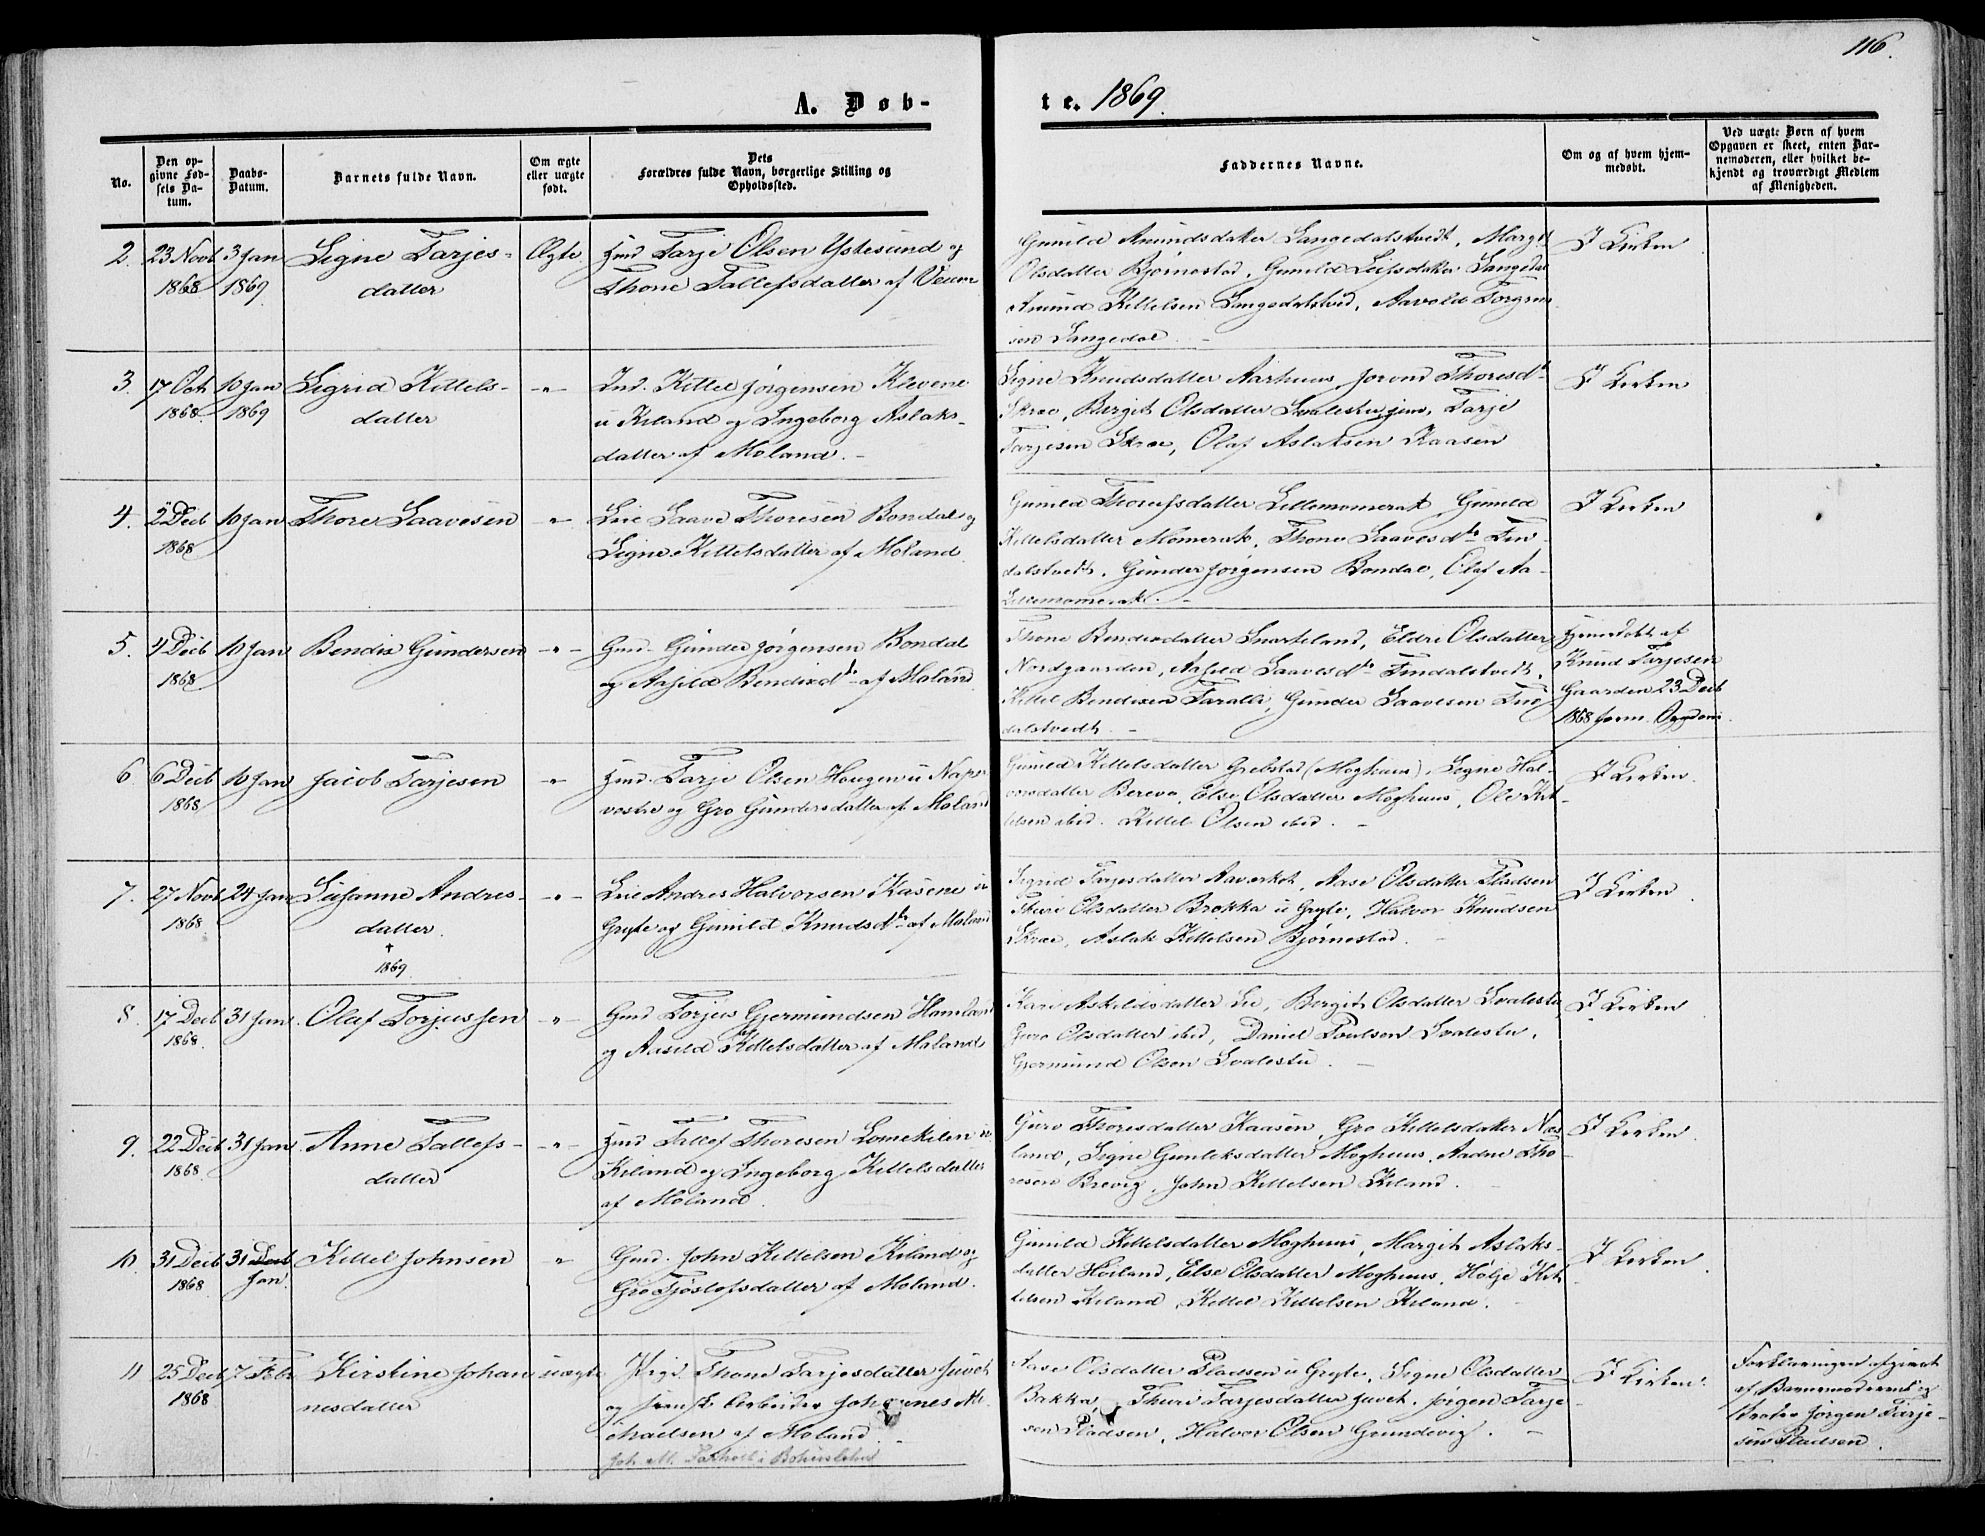 116.
A. Døb-
te. 1869.
No.
Den op-
givne Fød-
sels Da-
tum.
Daabs-
Datum.
Barnets fulde Navn.
Om ægte
eller uægte
født.
Dets
Forældres fulde Navn, borgerlige Stilling og
Opholdssted.
Faddernes Navne.
Om og af hvem hjem-
medøbt.
Ved uægte Børn af hvem
Opgaven er skeet, enten Bar-
nemoderen, eller hvilket be-
kjendt og troværdigt Medlem
af Menigheden.
2.
23 Novb
1868
3 Jan
1869
Signe Tarjes-
datter
Ægte
Tarje Olsen og
Thone Tallefsdatter af Veum
Gunild Amundsdatter Langedalstvedt, Margit
Olsdatter Bjørnestad, Gunild Leifsdatter Langedal
Amund Kittelsen Langedalstvedt, Aavold Torgrim
sen Langedal.
I Kirken
3
17 Oct
1868.
10 Jan
1869
Sigrid Kittels-
datter
-"-
Ind. Kittel Jørgensen Klevene
u Kiland og Ingeborg Aslaks-
datter af Moland.
Signe Knudsdatter Aarhuus, Jorond Thoresd
Skree, Bergit Olsdatter Svalestu, Tarje
Tarjesen Skree, Olaf Aslaksen Kaasen
I Kirken
4.
2 Decb
1868
10 Jan
Thore Saavesen
"
Leie Saave Thoresen Bondal og
Signe Kittelsdatter af Moland.
Gunild Lillemomrak, Gunild
Kittelsdatter Momrak, Thone Saavesdtr Fin-
dalstvedt, Gunder Jørgensen Bondal, Olaf Aa-
Lillemomrak.
I Kirken
5.
4 Decb
1868
10 Jan
Bendix Gundersen
-"-
Gmd. Gunder Jørgensen Bondal
og Aasild Bendixdtr af Moland.
Thone Bendixdatter Snarteland, Eldri Olsdatter
Nordgaarden, Aasild Saavesdtr Findalstvedt,
Kittel Bendixen Taralli, Gunder Saavesen Fin
dalstvedt.
Hjemmedøbt af
Knud Tarjesen
Gaarden 23 Decb
1868
6
6 Decb
1868
10 Jan
Jacob Tarjesen
"
Hmd. Tarje Olsen Haugen u Naps
vestre og Gro Gundersdatter af Moland
Gunild Kittelsdatter Grebstad (Moghuus), Signe Hal-
vorsdatter Berevo, Else Olsdatter Moghuus, Ole Kit-
telsen ibid. Kittel Olsen ibid.
I Kirken.
7.
27 Novb
1868
24 Jan
Susanne Andres-
datter.
†
1869
-"-
Leie Andres Halvorsen Kasene u
Gryte og Gunild Knudsdtr af Moland
Sigrid Tarjesdatter, Aase Olsdatter Pladsen
Thuri Olsdatter Brekka u Gryte, Halvor Knudsen
Skree, Aslak Kittelsen Bjørnestad.
I Kirken
8.
17 Decb
1868.
31 Jan.
Olaf Torjussen
"
Gmd Torjus Gjermundsen Hamland
og Aasild Kittelsdatter af Moland
Kari Askildsdatter Lie, Bergit Olsdatter Svalestu,
Guro Olsdatter ibid, Daniel Poulsen Svalestu,
Gjermund Olsen Svalestu.
I Kirken
9.
22 Decb
1868
31 Jan
Anne Tallefs-
datter
-"-
Hmd Tallef Thoresen Lomekilen u
Kiland og Ingeborg Kittelsdatter
af Moland.
Guro Thoresdatter Kaasen, Gro Kittelsdatter Næs
land, Signe Gunleksdatter Moghuus, Aadne Tho-
resen Brevig, John Kittelsen Kiland.
I Kirken
10.
31 Decb
1868
31 Decb
Jan.
Kittel Johnsen
"
Gmd. John Kittelsen Kiland og
Gro Tjøstofsdatter af Moland.
Gunild Kittelsdatter Moghuus, Margit Aslaks-
datter Høiland, Else Olsdatter Moghuus, Hølje Kit
telsen Kiland, Kittel Kittelsen Kiland.
I Kirken.
11
25 Decb
1868
7 Febr
Kirstine Johan
nesdatter
uægte
Pige Thone Tarjesdatter Juvet
og svensk Arbeider Johannes Mi-
chaelsen af Moland.
Joh. M. i Bohuslehn
Aase Olsdatter Pladsen u Gryte, Signe Olsdatter
Bakka, Thuri Tarjesdatter Juvet, Jørgen Tarje
sen Pladsen, Halvor Olsen Grundevig.
I Kirken.
Forklaringen afgivet
af Barnemoderens
Broder Jørgen Tarje-
sen Pladsen.